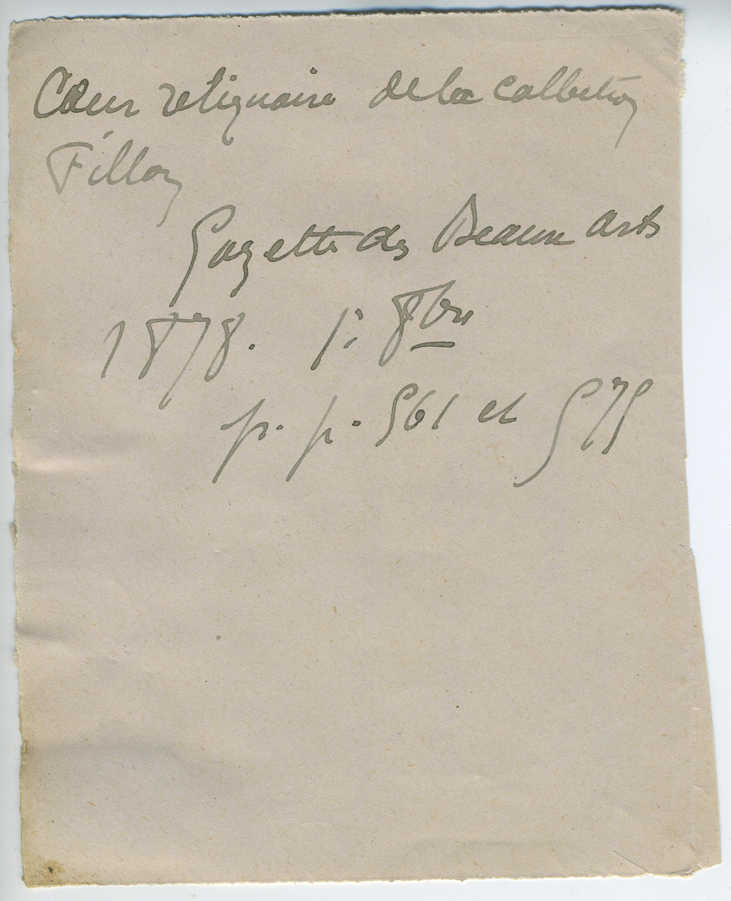 Cœur reliquaire de la collection
Fillon
Gazette des Beaux arts
1878. 1er 8bre
p. p. 561 et 575